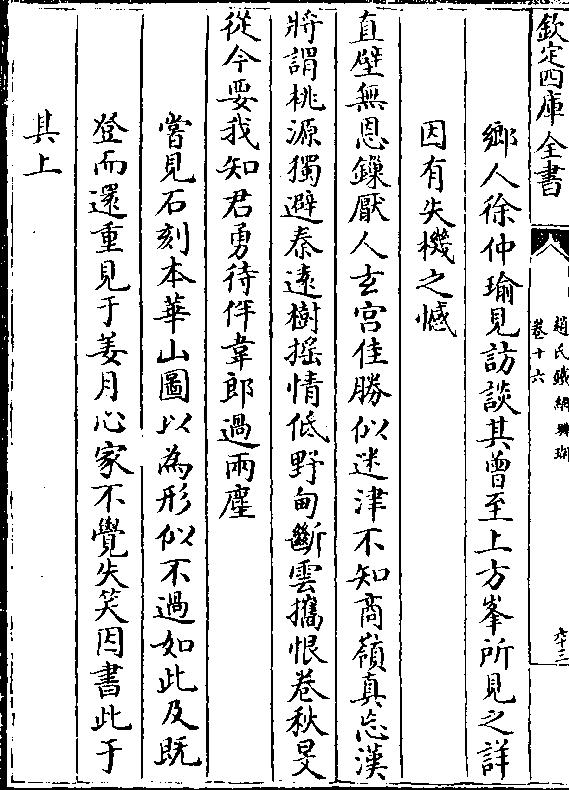 欽定四庫全書
趙氏鐵網珊瑚
卷十六
六十三
鄉人徐仲瑜見訪談其曾至上方峯所見之詳
因有失機之憾
直壁無恩鏁厭人玄宮佳勝似迷津不知商嶺真忘漢
將謂桃源獨避秦遠樹揺情低野甸斷雲攜恨卷秋旻
從今要我知君勇待伴韋郎過兩塵
嘗見石刻本華山圖以為形似不過如此及既
登而還重見于姜月心家不覺失笑因書此于
其上